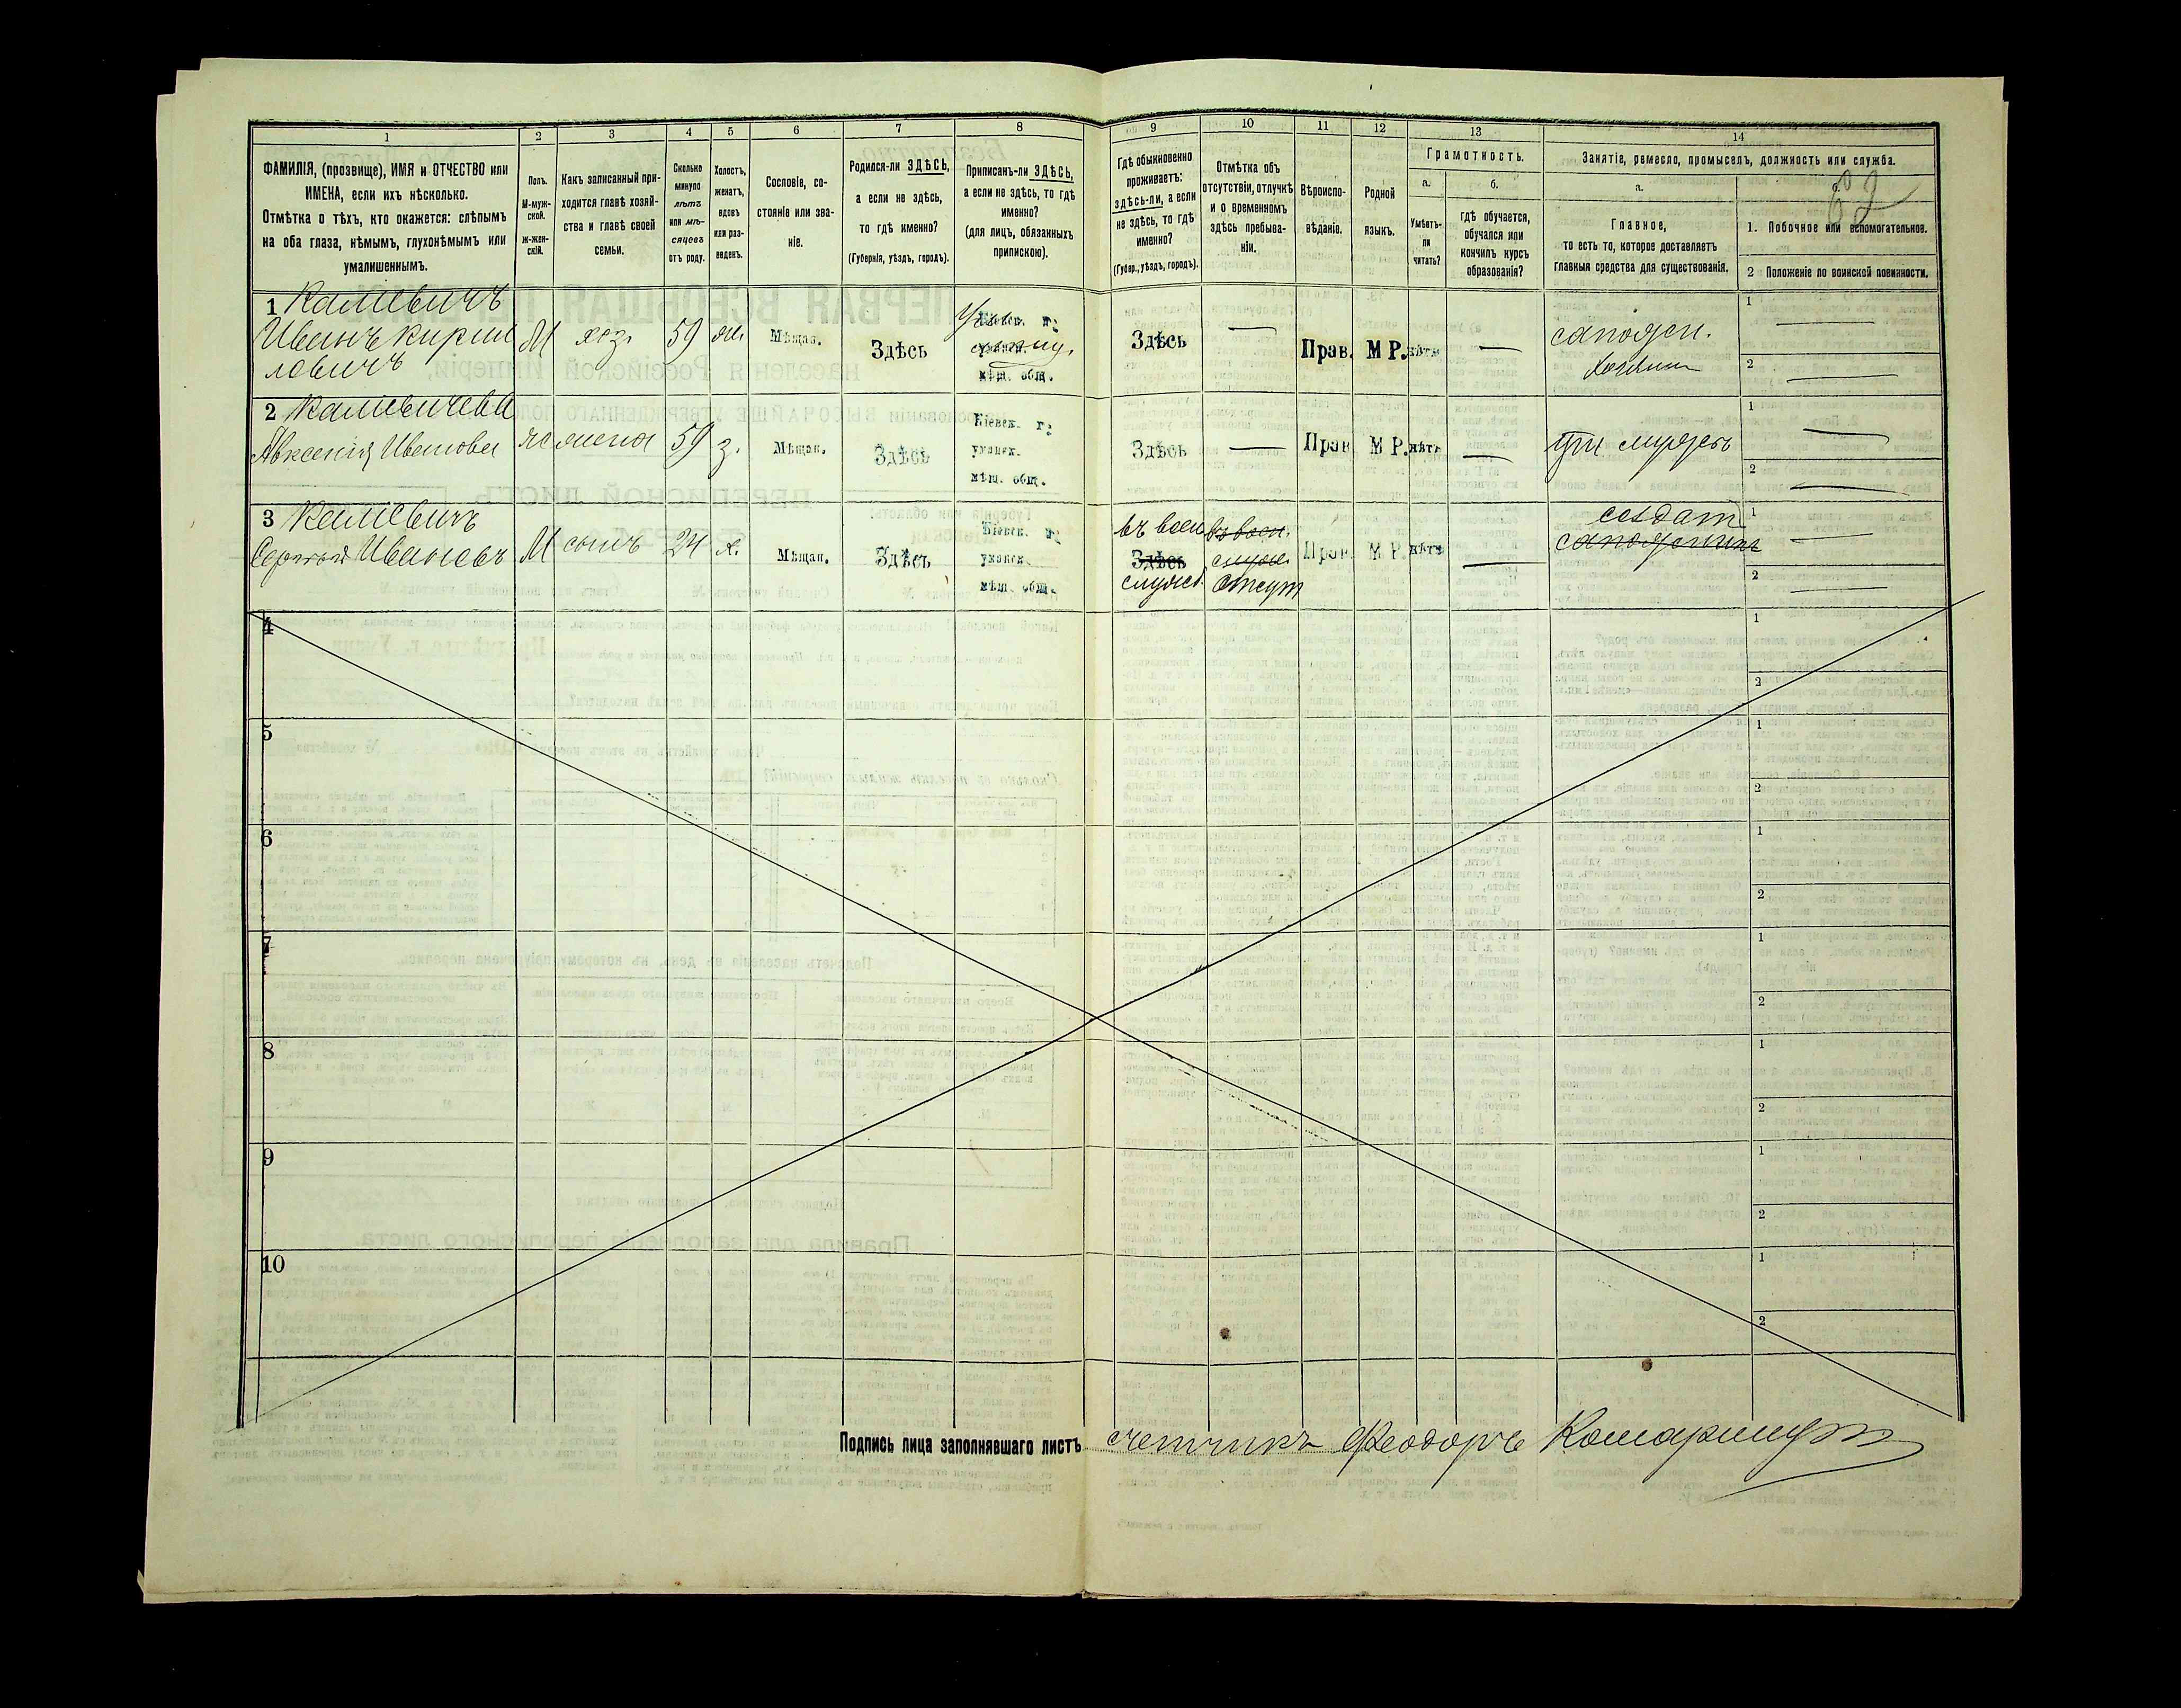 1 2 3 4 5 6 7 8 9 10 11 12 13 14
ФАМИЛІЯ, (прозвище), ИМЯ и ОТЧЕСТВО или
ИМЕНА, если ихъ нѣсколько.
Отмѣтка о тѣхъ, кто окажется: слѣпымъ
на оба глаза, нѣмымъ, глухонѣмымъ или
умалишеннымъ.
Полъ.
М-муж-
ской.
Ж-жен-
скій.
Какъ записанный при-
ходится главѣ хозяй-
ства и главѣ своей
семьи.
Сколько
минуло
лѣтъ
или мѣ-
сяцевъ
отъ роду.
Холостъ,
женатъ,
вдовъ
или раз-
веденъ.
Сословіе, со-
стояніе или зва-
ніе.
Родился-ли ЗДѢСЬ,
а если не здѣсь,
то гдѣ именно?
(Губернія, уѣздъ, городъ).
Приписанъ-ли ЗДѢСЬ,
а если не здѣсь, то гдѣ
именно?
(для лицъ, обязанныхъ
припискою).
Гдѣ обыкновенно
проживаетъ:
здѣсь-ли, а если
не здѣсь, то гдѣ
именно?
(Губер., уѣздъ, городъ).
Отмѣтка объ
отсутствіи, отлучкѣ
и о временномъ
здѣсь пребыва-
ніи.
Вѣроиспо-
вѣданіе.
Родной
языкъ.
Грамотность.
а.
Умѣетъ-
ли
читать?
б.
гдѣ обучается,
обучался или
кончилъ курсъ
образованія?
Занятіе, ремесло, промыселъ, должность или служба.
а.
Главное,
то есть то, которое доставляетъ
главныя средства для существованія.
62
1. Побочное или вспомогательное.
2 Положеніе по воинской повинности.
1 Калиевичъ
Иванъ Кирил
ловичъ
М хоз. 59 ж. Мѣщан. Здѣсь
Кіевск. г.
мѣщ. общ.
Здѣсь — Прав. М Р. нѣтъ —
сапожн.
хозяин
1 —
2 —
2 Калиевичева
Авксенія Иванова
ж жена 59 з. Мѣщан. Здѣсь
Кіевск. г.
уманск.
мѣщ. общ.
Здѣсь — Прав. М Р. нѣтъ —
при мужѣ
1 —
2 —
3 Калиевичъ
Ивановъ
М сынъ 24 х. Мѣщан. Здѣсь
Кіевск. г.
уманск.
мѣщ. общ.
въ воен
Здѣсь
служб.
въ воен.
служ.
отсут
Прав. М Р. нѣтъ —
солдат
сапожникъ
1 —
2 —
4 1
2
5 1
2
6 1
2
7 1
2
8 1
2
9 1
2
10 1
2
Подпись лица заполнявшаго листъ счетчикъ Феодоръ